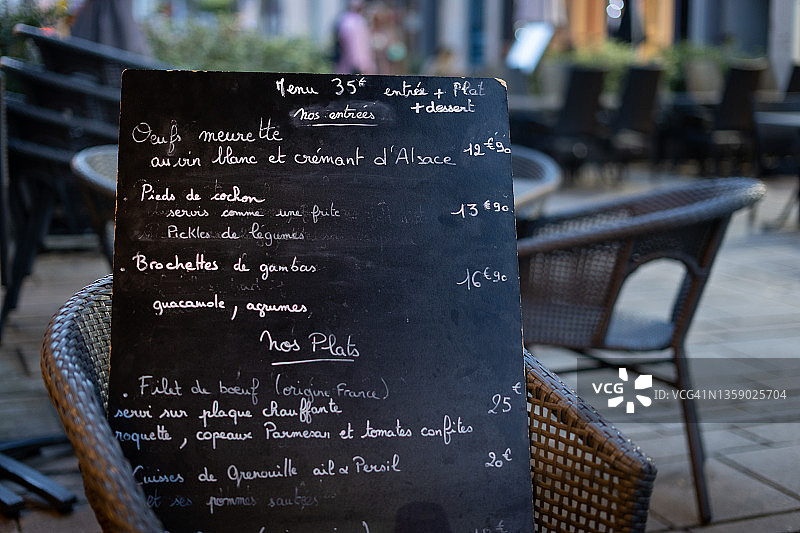 Menu 35€ entrée + Plat
+ dessert
nos entrées
Oeufs meurette
au vin blanc et crémant d'Alsace 12€90
. Pieds de cochon
servis comme une frite 13€90
Pickles de légumes
. Brochettes de gambas
16€90
guacamole, agrumes
nos Plats
. Filet de bœuf (origine France)
servi sur plaque chauffante 25€
roquette, copeaux Parmesan et tomates confites
Cuisses de Grenouille ail & Persil 20€
et ses pommes sautées
VCG
ID: VCG41N1359025704